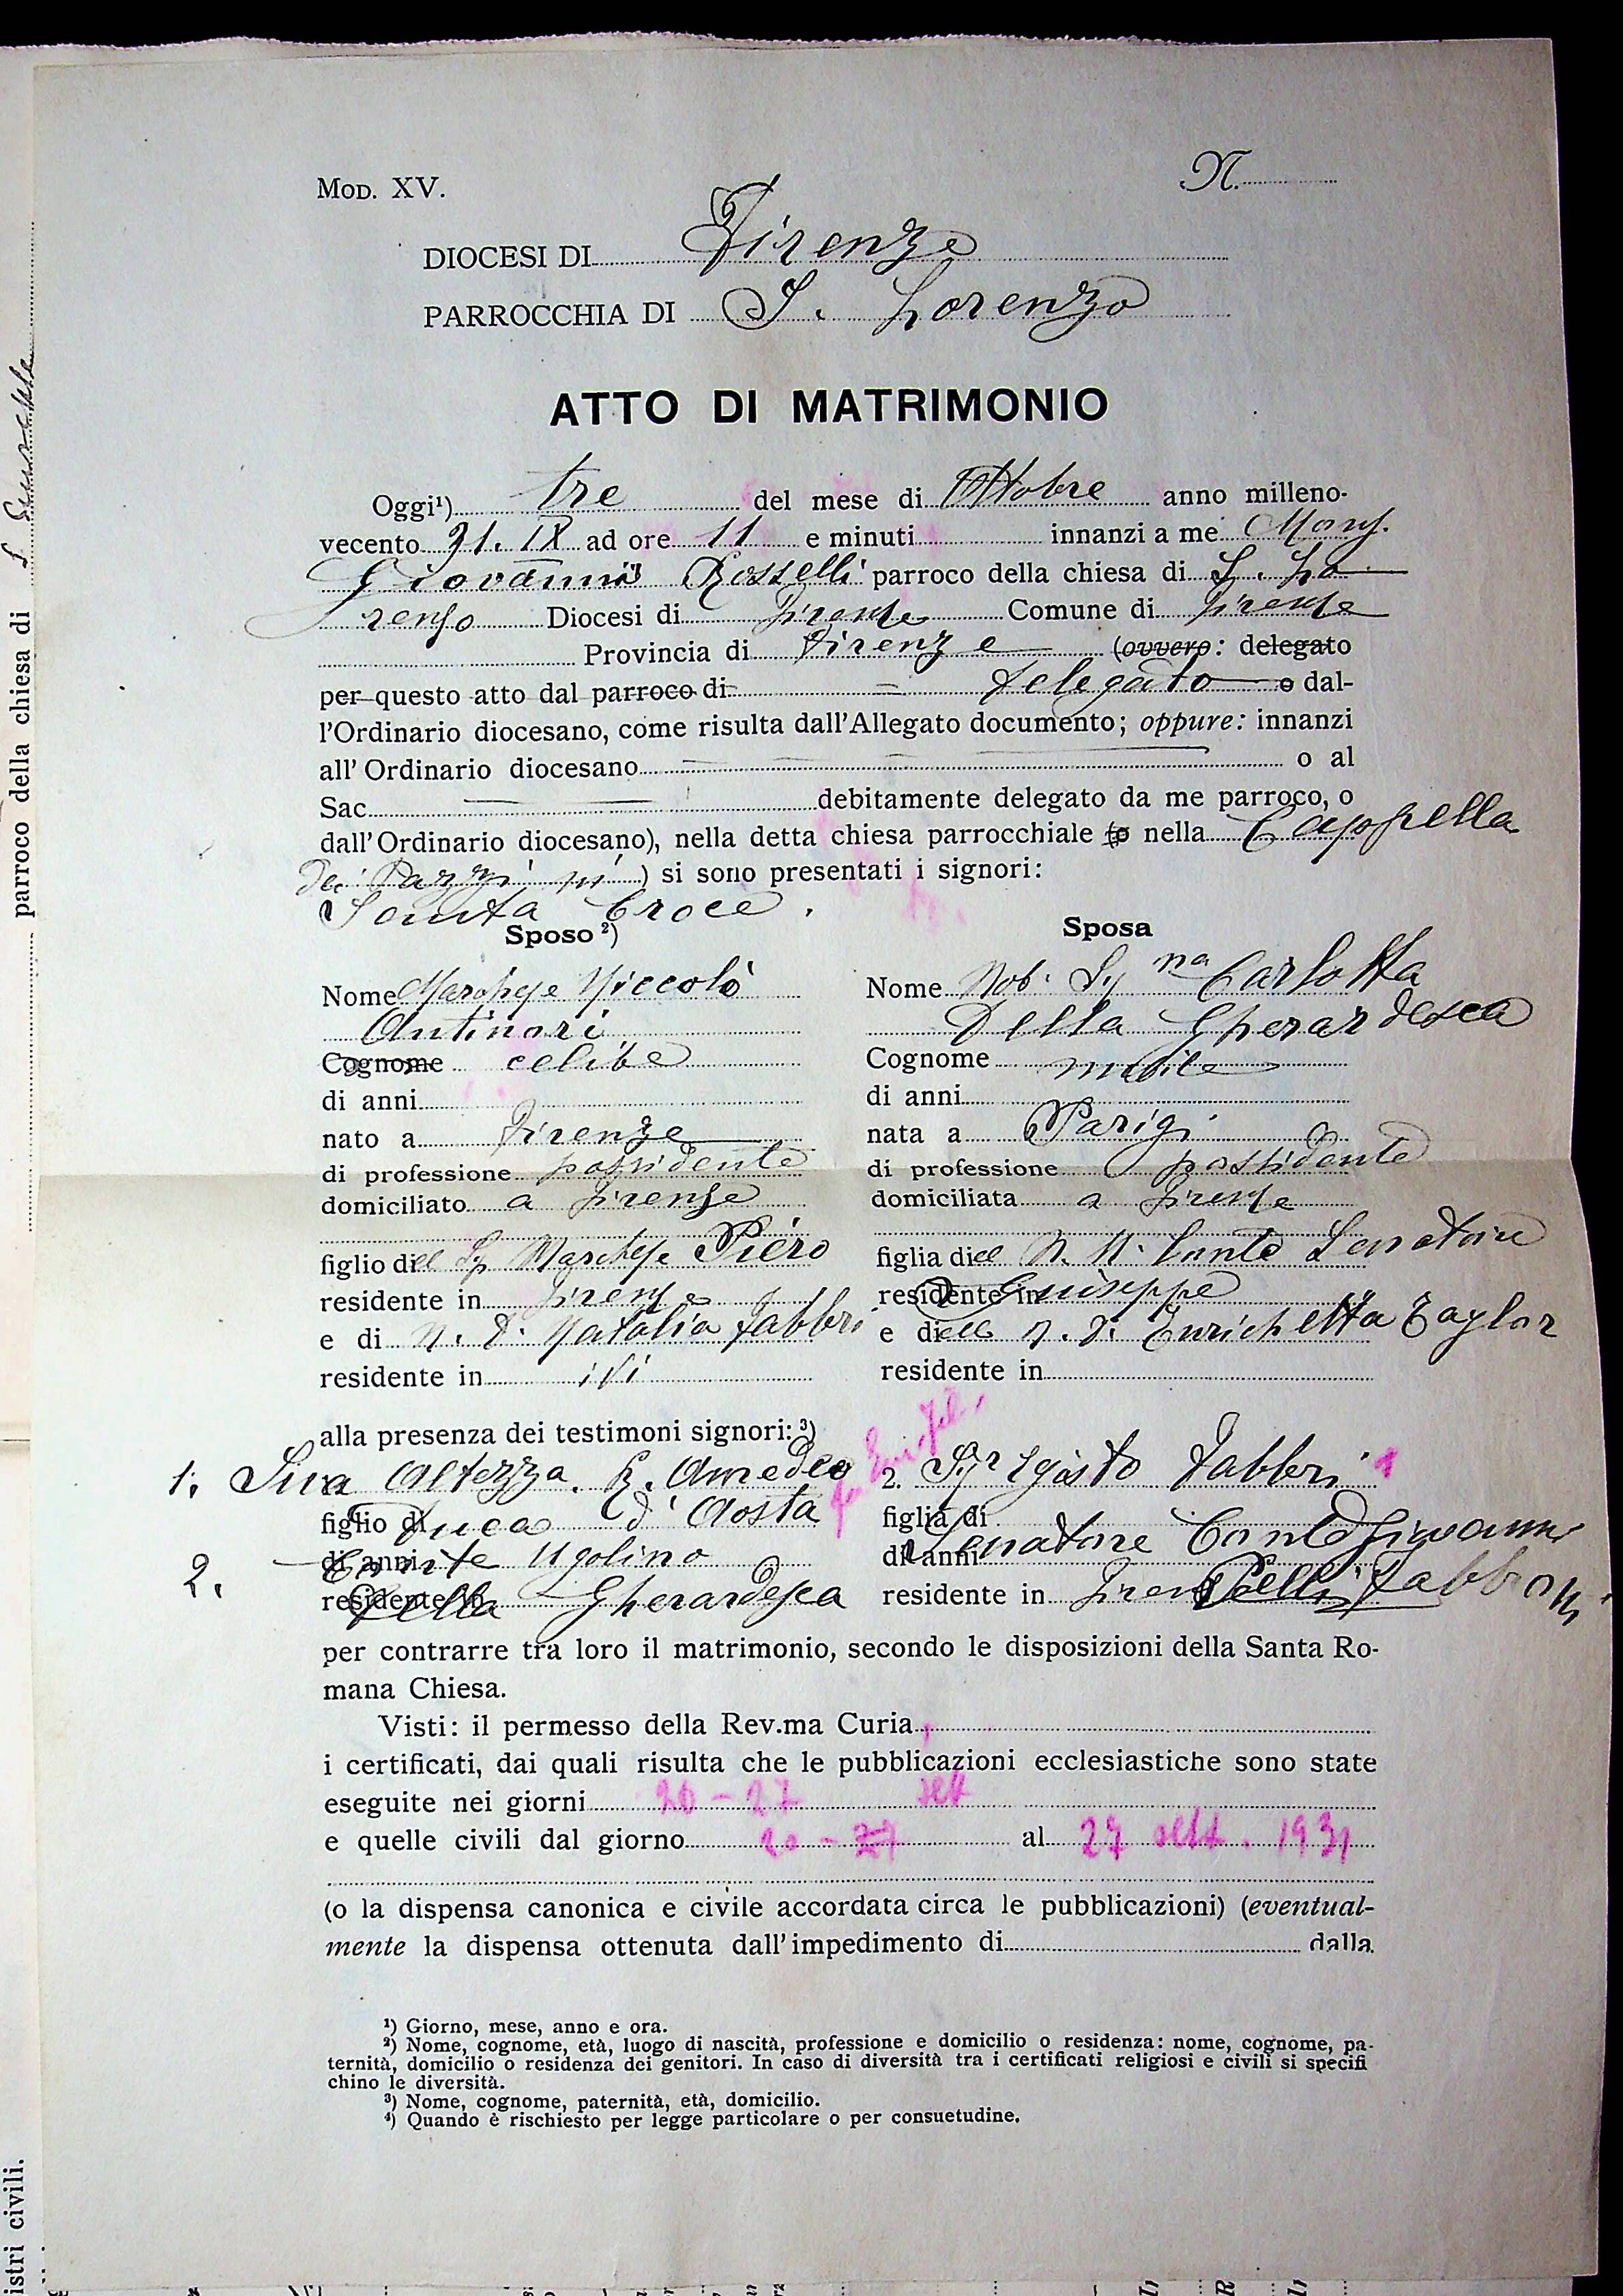 Mod. XV.
N.
DIOCESI DI Firenze
PARROCCHIA DI S. Lorenzo
ATTO DI MATRIMONIO
Oggi¹) tre del mese di Ottobre anno milleno-
vecento 31. IX ad ore 11 e minuti innanzi a me Mons.
Giovanni Rosselli parroco della chiesa di S. Lo
renzo Diocesi di Firenze Comune di Firenze
Provincia di Firenze (ovvero: delegato
per questo atto dal parroco di delegato o dal-
l'Ordinario diocesano, come risulta dall'Allegato documento; oppure: innanzi
all'Ordinario diocesano o al
Sac. debitamente delegato da me parroco, o
dall'Ordinario diocesano), nella detta chiesa parrocchiale (o nella Cappella
dei Pazzi in) si sono presentati i signori:
Santa Croce.
Sposo ²)
Nome Marchese Niccolò
Antinori
Cognome celibe
di anni
nato a Firenze
di professione possidente
domiciliato a Firenze
figlio del Sig Marchese Piero
residente in Firenze
e di N. D. Natalia Fabbri
residente in ivi
Sposa
Nome Nob. Sig na Carlotta
Della Gherardesca
Cognome nubile
di anni
nata a Parigi
di professione possidente
domiciliata a Firenze
figlia del N. H. Conte Senatore
residente in Giuseppe
e della N. D. Enrichetta Taylor
residente in
alla presenza dei testimoni signori: ³)
1. Sua Altezza. R. Amedeo
figlio di Duca d'Aosta
di anni Conte Ugolino
2. residente in Della Gherardesca
2. Sigr Egisto Fabbri 1
figlia di
di anni Senatore Conte Giovanni
residente in Firenze Pelli Fabbroni
per contrarre tra loro il matrimonio, secondo le disposizioni della Santa Ro-
mana Chiesa.
Visti: il permesso della Rev.ma Curia
i certificati, dai quali risulta che le pubblicazioni ecclesiastiche sono state
eseguite nei giorni 20 - 27 sett
e quelle civili dal giorno 20 - 27 al 27 sett. 1931
(o la dispensa canonica e civile accordata circa le pubblicazioni) (eventual-
mente la dispensa ottenuta dall'impedimento di dalla
¹) Giorno, mese, anno e ora.
²) Nome, cognome, età, luogo di nascità, professione e domicilio o residenza: nome, cognome, pa-
ternità, domicilio o residenza dei genitori. In caso di diversità tra i certificati religiosi e civili si specifi
chino le diversità.
³) Nome, cognome, paternità, età, domicilio.
⁴) Quando è rischiesto per legge particolare o per consuetudine.
parroco della chiesa di
istri civili.